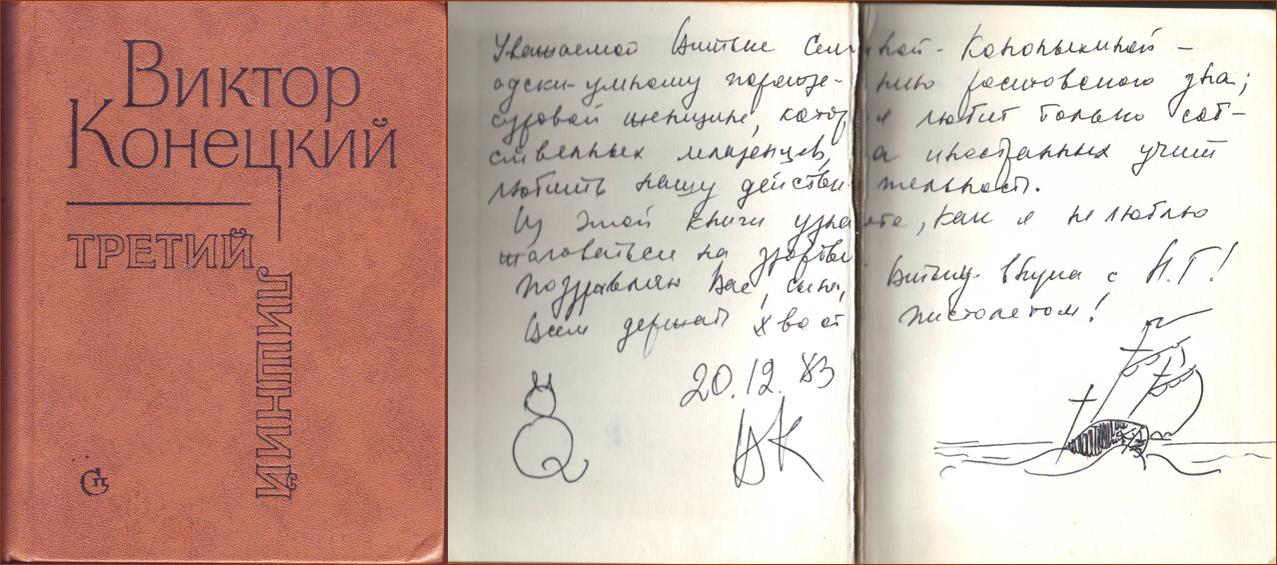 Виктор
Конецкий
ТРЕТИЙ
ЛИШНИЙ
Уважаемой
адски-умному порожде-нию ростовского дна;
суровой женщине, котор я любит только соб-
ственных младенцев, а иностранных учит
любить нашу действи-тельность.
Из этой книги узна ете, как я не люблю
жаловаться на здоровье
Поздравляю Вас, сына, вкупе с Н.Г!
Всем держать хвост пистолетом!
20.12.83
ВК